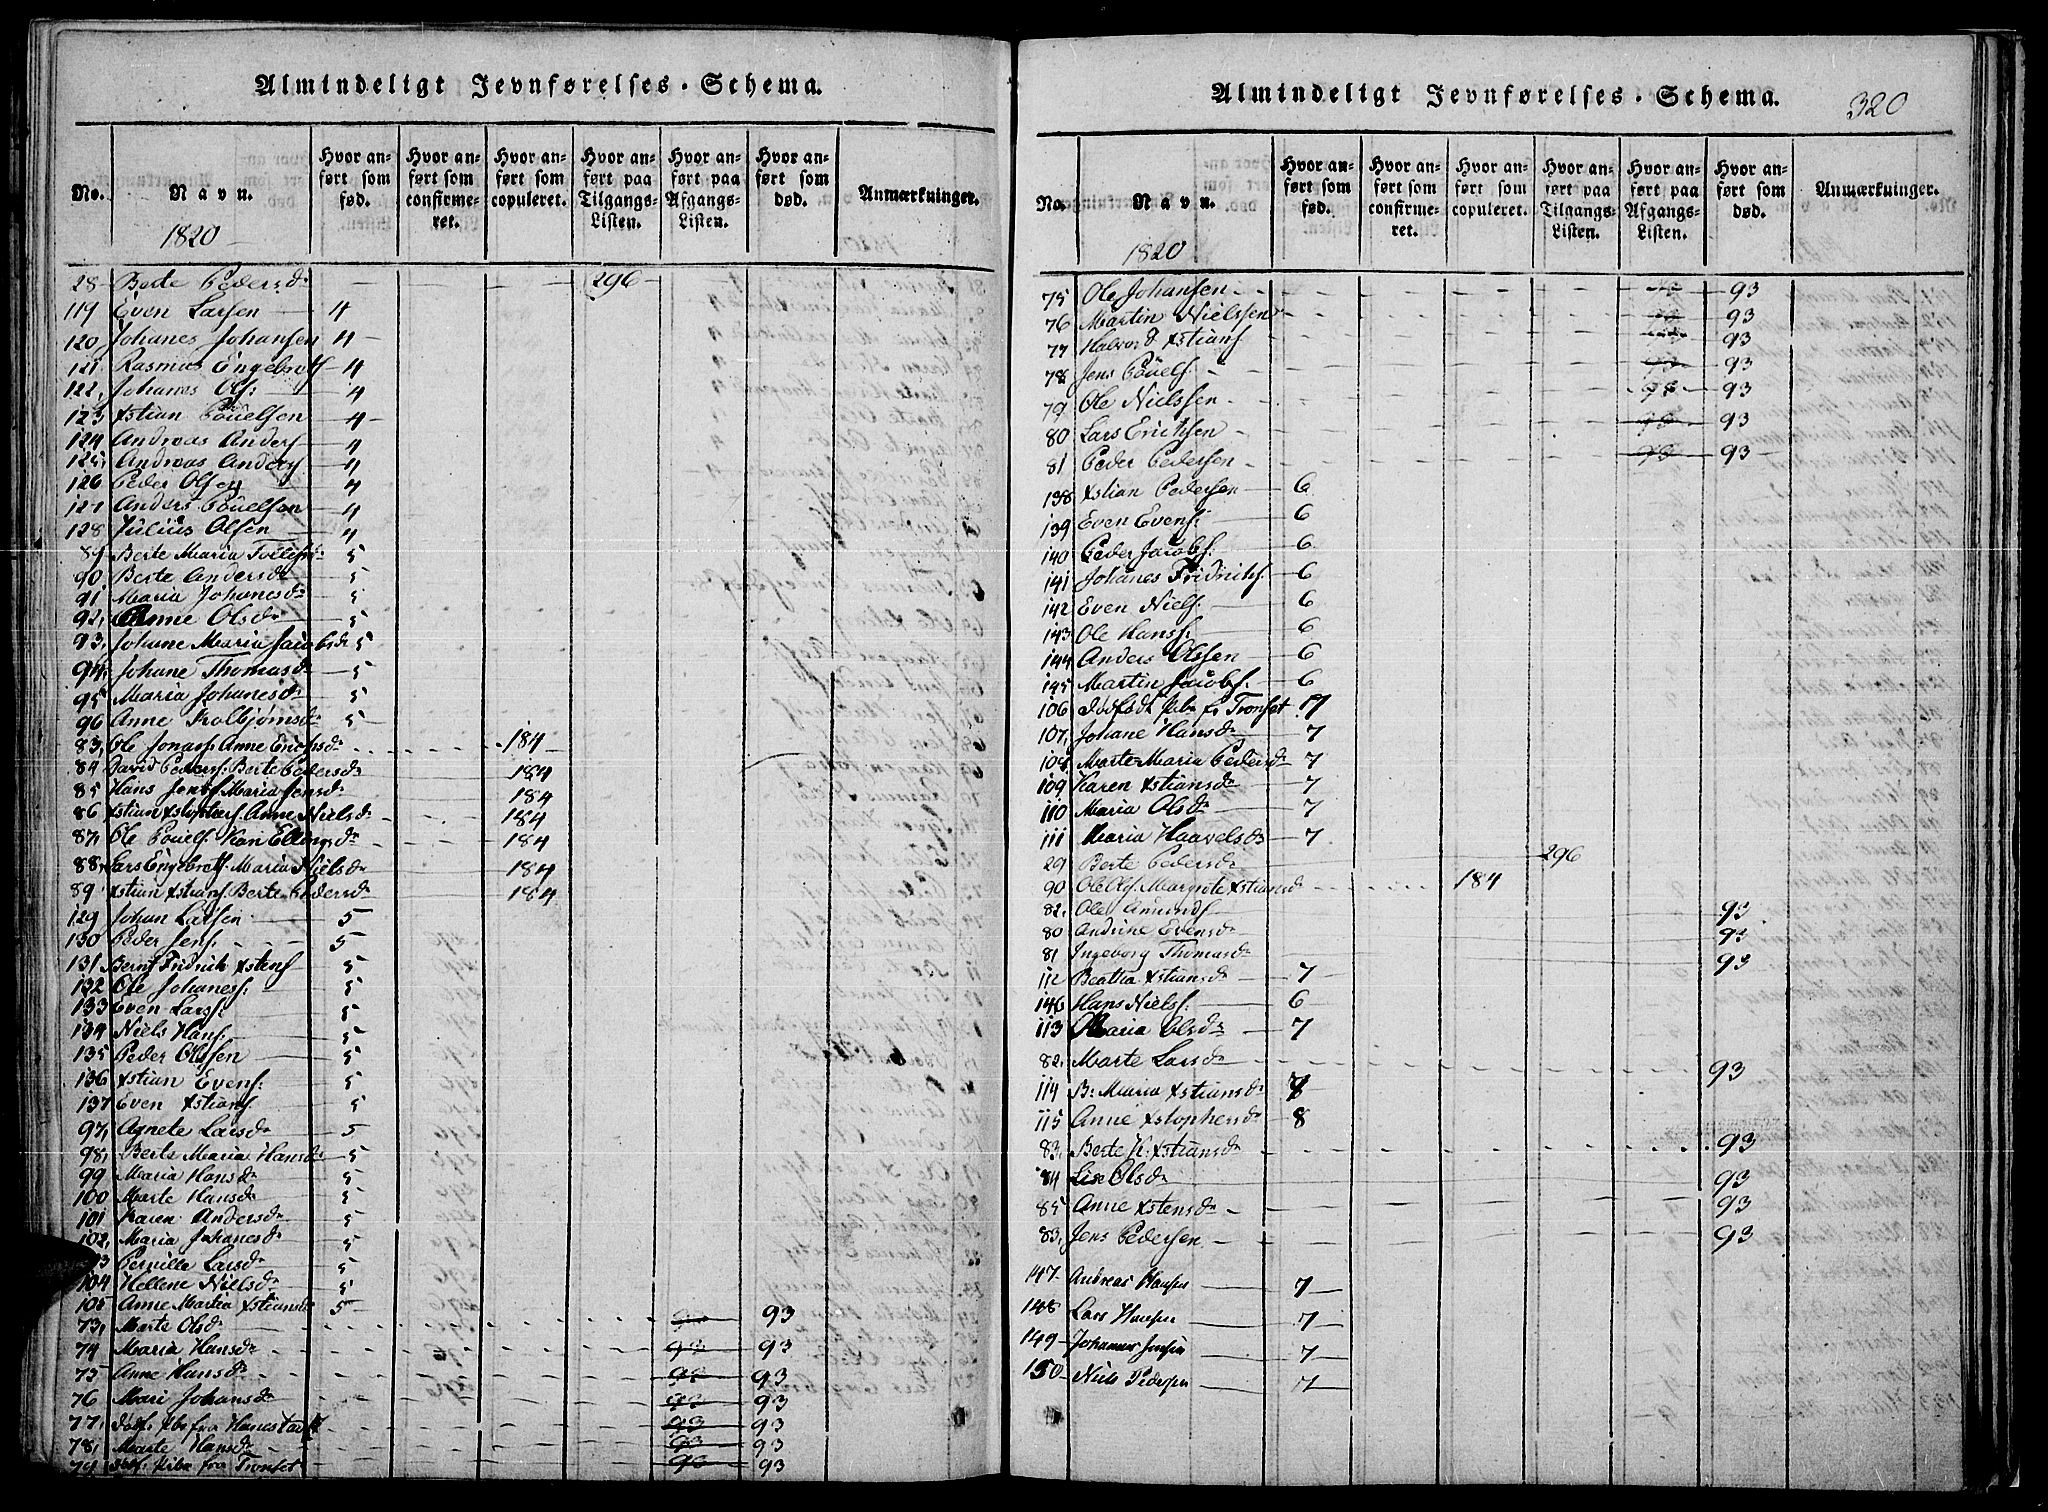 Almindeligt Jevnførelses-Schema.
No. Navn. Hvor anført som fød. Hvor anført som confirmeret. Hvor anført som copuleret. Hvor anført paa Tilgangs-Listen. Hvor anført paa Afgangs-Listen. Hvor anført som død. Anmærkninger.
1820
28 Berte Pedersd 296
119 Even Larsen 4
120 Johanes Johansen 4
121 Rasmus Engebretf 4
122, Johanes Ols: 4
123 Xstian Pouelsen 4
124 Andreas Anders 4
125, Andreas Anders 4
126 Peder Olsen 4
127 Anders Pouelsen 4
128 Julius Olsen 4
89 Berte Maria Tollefsd 5
90 Berte Andersd 5
91 Maria Johanesd 5
92, Anne Olsd 5
93, Johane Maria Jacobsd 5
94, Johane Thomasd 5
95 Maria Johanesd 5
96 Anne Kolbjørnsd 5
83, Ole Jonasf. Anne Erichsd 184
84 David Pedersf. Berte Pedersd 184
85 Hans Jensf. Maria Jensd 184
86 Xstian Xstophersf. Anne Nielsd 184
87, Ole Pouelsf. Kari Ellingsd 184
88 Lars Engebretf. Maria Nielsd 184
89 Xstian Xstiansf. Berte Pedersd 184
129 Johan Larsen 5
130 Peder Jensf. 5
131 Bernt Fridrich Xstensf 5
132 Ole Johanesf. 5
133 Even Larsf: 5
134 Niels Hansf. 5
135 Peder Olssen 5
136 Xstian Evensf. 5
137 Even Xstiansf. 5
97, Agnete Larsd 5
98, Berte Maria Hansd 5
99 Maria Hansd 5
100 Marte Hansd 5
101 Karen Andersd 5
102, Maria Johanesd 5
103 Pernille Larsd 5
104 Hellene Nielsd 5
105 Anne Martia Xstiansd 5
73, Marte Olsd 93 93
74 Maria Hansd 93 93
75 Anne Hansd 93 93
76 Mari Johansd 93 93
77, fra Hanestad 93 93
78, Marte Hansd 93 93
79 fra Tronset 93 93
Almindeligt Jevnførelses-Schema.
320
No. Navn. Hvor anført som fød. Hvor anført som confirmeret. Hvor anført som copuleret. Hvor anført paa Tilgangs-Listen. Hvor anført paa Afgangs-Listen. Hvor anført som død. Anmærkninger.
1820
75 Ole Johansen 93
76 Martin Nielssen 93
77 Halvor Xstiansf 93
78 Jens Pouelsf. 93
79 Ole Nielssen 93 93
80 Lars Erichsen 93 93
81 Peder Pedersen 93 93
138 Xstian Pedersen 6
139 Even Evensf. 6
140 Peder Jacobsf. 6
141 Johanes Fridrichsf. 6
142 Even Nielsf. 6
143 Ole Hansf. 6
144 Anders Olssen 6
145 Martin Jacobsf. 6
106 fr Tronset 7
107, Johane Hansd 7
108, Marte Maria Pedersd 7
109 Karen Xstiansd 7
110 Maria Olsd 7
111 Maria Haavelsd 7
29 Berte Pedersd 296
90 Ole Olsf. Margrete Xstiansd 184
82, Ole Amundsf 93
80 Andrine Evensd 93
81 Ingeborg Thomasd 93
112 Beatha Xstiansd 7
146 Hans Nielsf. 6
113 Maria Olsd 7
82, Marte Larsd 93
114 B: Maria Xstiansd 7
115 Anne Xstophersd 8
83, Berte K. Xstiansd 93
84 Lise Olsd 93
85, Anne Xstensd 93
83, Jens Pedersen 93
147 Andreas Hansen 7
148 Lars Hansen 7
149 Johannes Jensen 7
150 Niels Pedersen 7